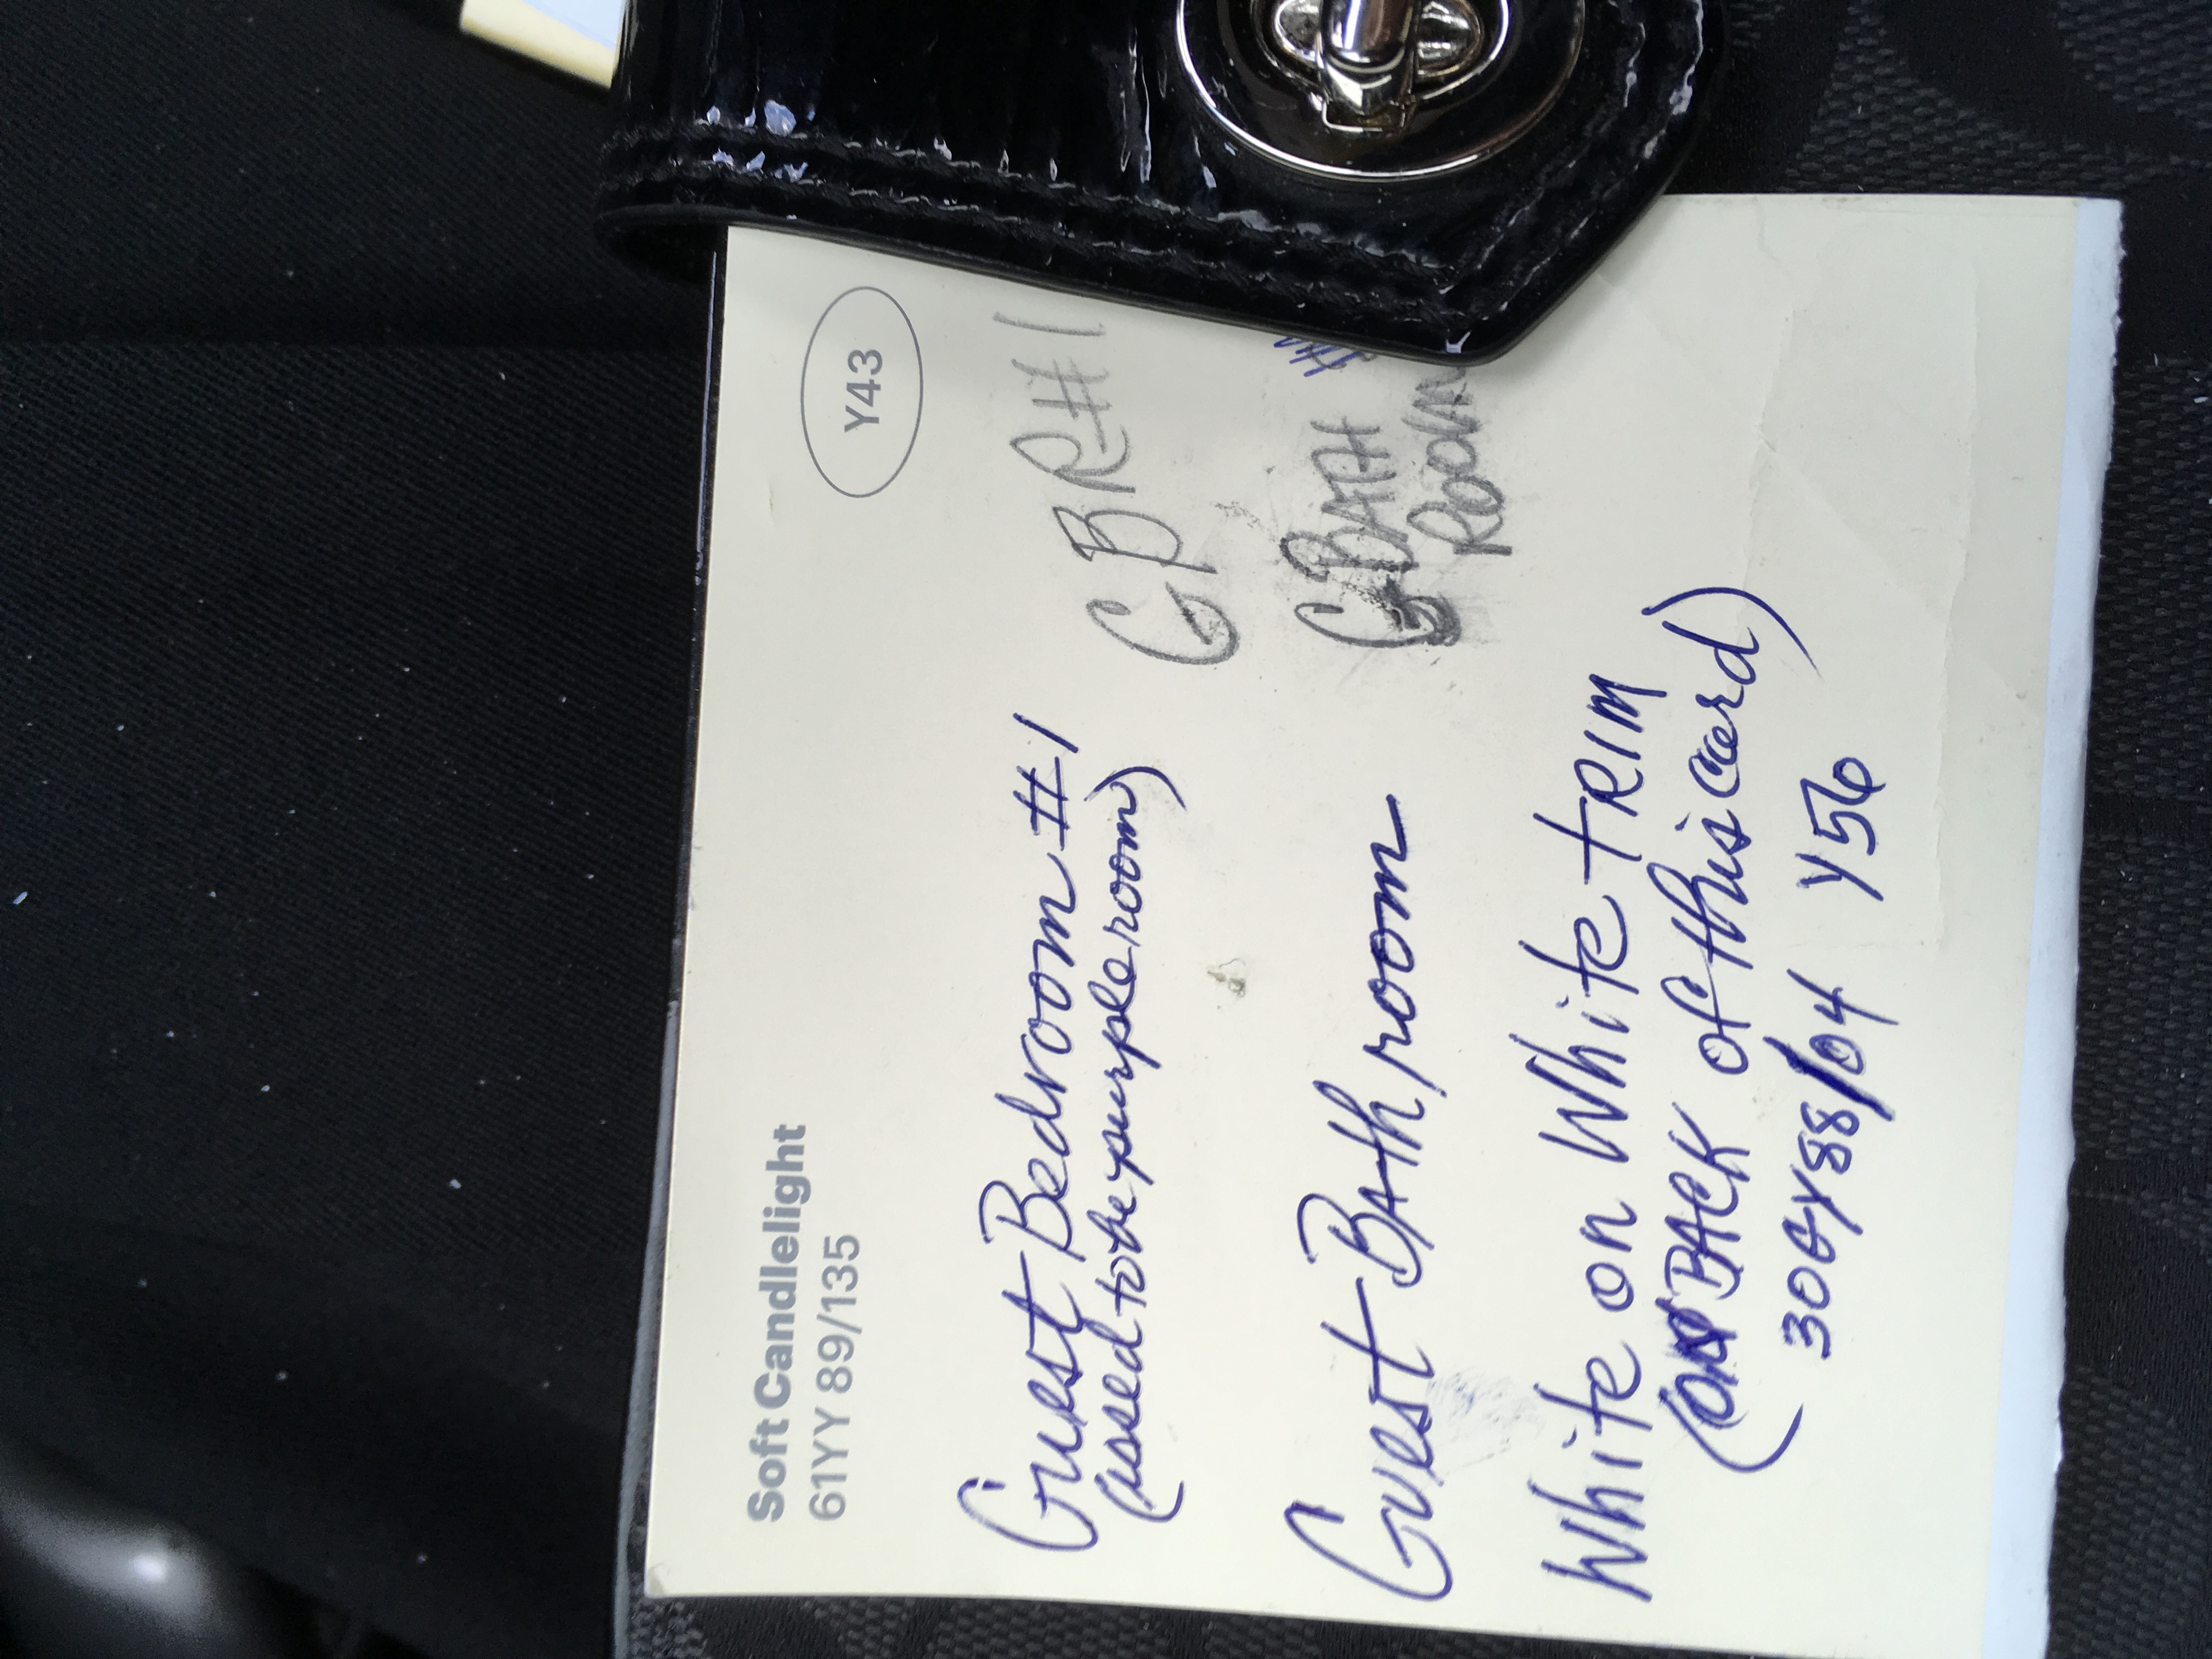 Soft Candlelight
61YY 89/135
Y43
Guest Bedroom #1
(used to be purple room)
G BR #1
Guest Bathroom
G BATH
ROOM
White on White TRIM
(ON BACK of this card)
30GY88/04 Y56